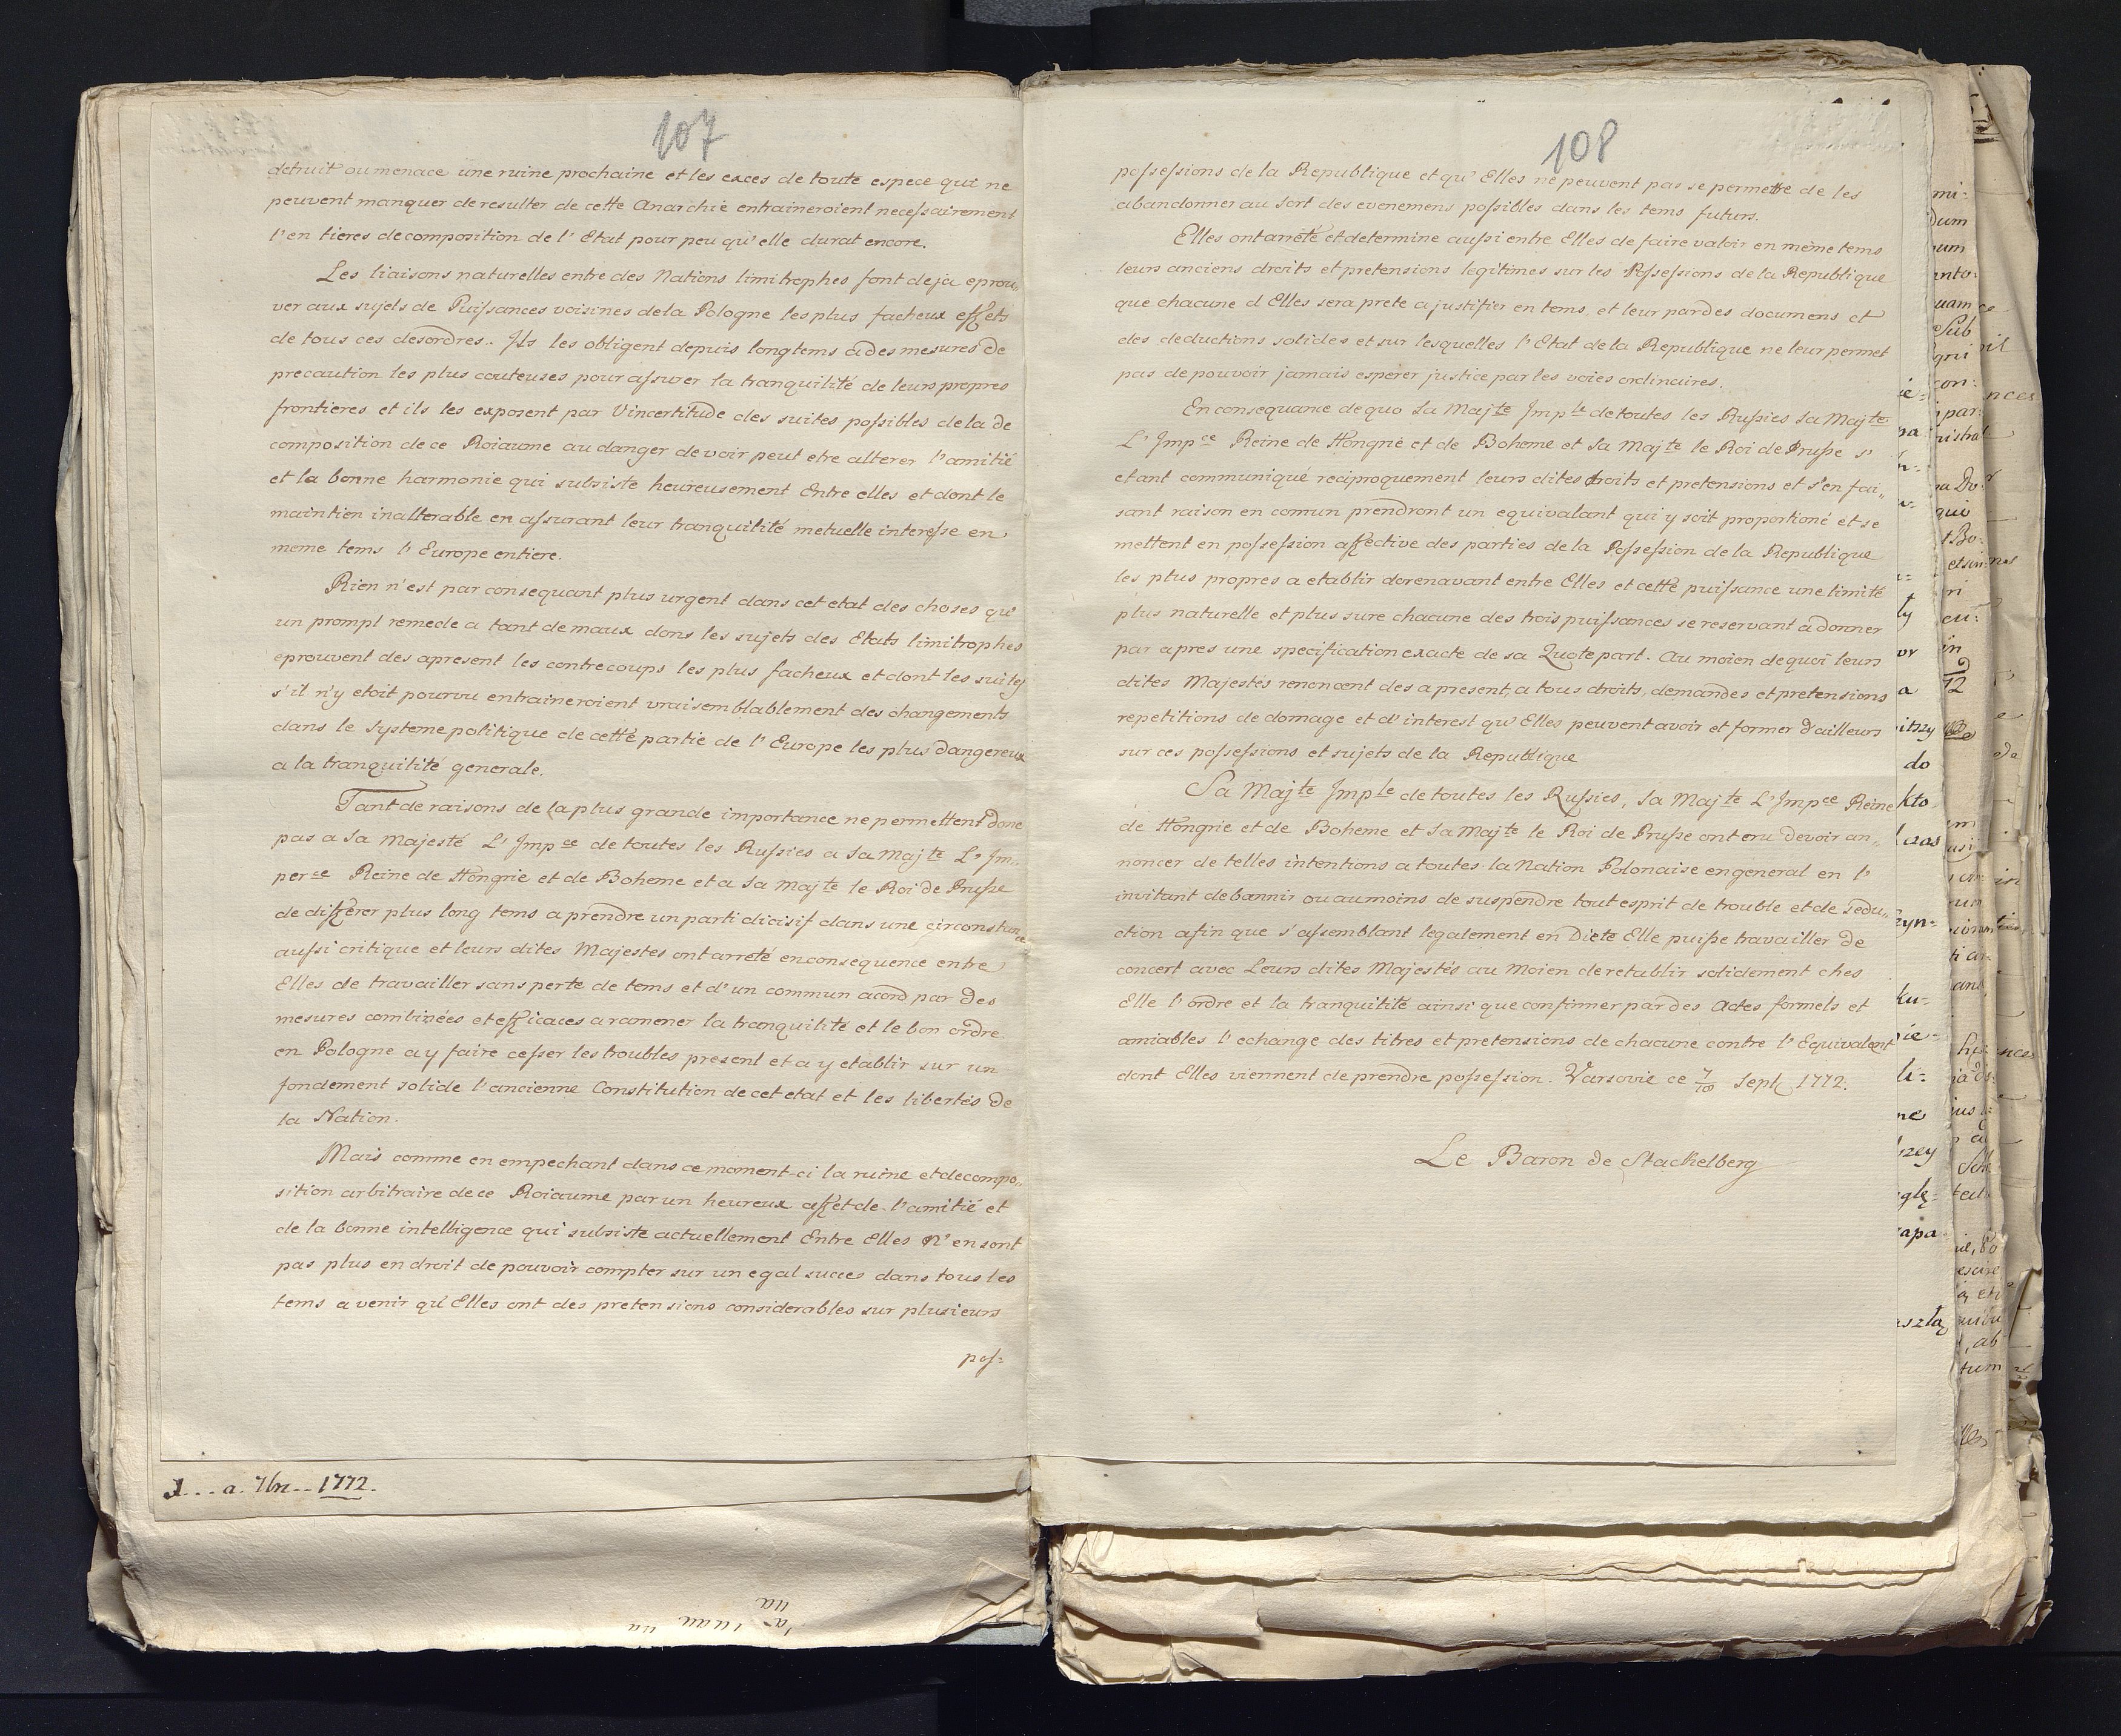 107
detruit ou menace une ruine prochaine et les exces de toute espece qui ne
peuvent manquer de resulter de cette Anarchie entraineroient necessairement
l'en tieres decomposition de l'Etat pour peu qu'elle durat encore.
Les liaisons naturelles entre des Nations limitrophes font deja eprou„
ver aux sujets de Puissances voisines de la Pologne les plus facheux effets
de tous ces desordres. Ils les obligent depuis longtems à des mesures de
precaution les plus couteuses pour assurer la tranquilité de leurs propres
frontieres et ils les exposent par l'incertitude des suites possibles de la de
composition de ce Roiaume au danger de voir peut etre alterer l'amitié
et la bonne harmonie qui subsiste heureusement Entre elles et dont le
maintien inalterable en assurant leur tranquilité metuelle interesse en
meme tems l'Europe entiere.
Rien n'est par consequant plus urgent dans cet etat des choses qu'
un prompt remede a tant de maux dons les sujets des Etats limitrophes
eprouvent des apresent les contrecoups les plus facheux et dont les suites
s'il n'y etoit pourvu entraineroient vraisemblablement des changements
dans le Systeme politique de cette partie de l'Europe les plus dangereux
a la tranquilité generale.
Tant de raisons de la plus grande importance ne permettent donc
pas a Sa Majesté L'Impce de toutes les Russies a Sa Majte L'Im„
perce Reine de Hongrie et de Boheme et a Sa Majte le Roi de Prusse
de differer plus long tems a prendre un parti dicisif dans une circonstance
aussi critique et leurs dites Majestes ont arreté en consequence entre
Elles de travailler sans perte de tems et d'un commun acord par des
mesures combinées et efficaces a ramener la tranquilité et le bon ordre
en Pologne a y faire cesser les troubles present et a y etablir sur un
fondement solide l'ancienne Constitution de cet etat et les libertés de
la Nation.
Mais comme en empechant dans ce moment-ci la ruine et decompo„
sition arbitraire de ce Roiaume par un heureux effet de l'amitié et
de la bonne intelligence qui subsiste actuellement Entre Elles N'en sont
pas plus en droit de pouvoir compter sur un egal succes dans tous les
tems a venir qu'Elles ont des pretensions considerables sur plusieurs
pos=
a. 7br. 1772.
108
possessions de la Republique et qu'Elles ne peuvent pas se permettre de les
abandonner au sort des evenemens possibles dans les tems futurs.
Elles ont arreté et determine aussi entre Elles de faire valoir en même tems
leurs anciens droits et pretensions legitimes sur les Possessions de la Republique
que chacune d Elles sera prete a justifier en tems et leur par des documens et
des deductions solides et sur lesquelles l'Etat de la Republique ne leur permet
pas de pouvoir jamais esperer justice par les voies ordinaires.
En consequance de quo Sa Majte Imple de toutes les Russies Sa Majte
L'Impce Reine de Hongrie et de Boheme et Sa Majte le Roi de Prusse s'
etant communiqué reciproquement leurs dites droits et pretensions et s'en fai„
sant raison en comun prendront un equivalant qui y soit proportioné et se
mettent en possession affective des parties de la Possession de la Republique
les plus propres a etablir dorenavant entre Elles et cette puissance une limité
plus naturelle et plus sure chacune des trois puissances se reservant a donner
par apres une specification exacte de sa Quote part. Au moien de quoi leurs
dites Majestés renoncent des a present, a tous droits, demandes et pretensions
repetitions de domage et d'interest qu'Elles peuvent avoir et former d'ailleurs
sur ces possessions et sujets de la Republique
Sa Majte Imple de toutes les Russies, Sa Majte L'Impce Reine
de Hongrie et de Boheme et Sa Majte le Roi de Prusse ont cru devoir an„
noncer de telles intentions a toutes la Nation Polonaise en general en l'
invitant de bannir ou au moins de suspendre tout esprit de trouble et de sedu„
ction afin que s'assemblant legalement en Diete Elle puisse travailler de
concert avec Leurs dites Majestés au Moien de retablir solidement ches
Elle l'ordre et la tranquitité ainsi que confirmer par des Actes formels et
amiables l'echange des titres et pretensions de chacune contre l'Equivalent
dont Elles viennent de prendre possession. Varsovie ce 7/18 Sept 1772.
Le Baron de Stackelberg